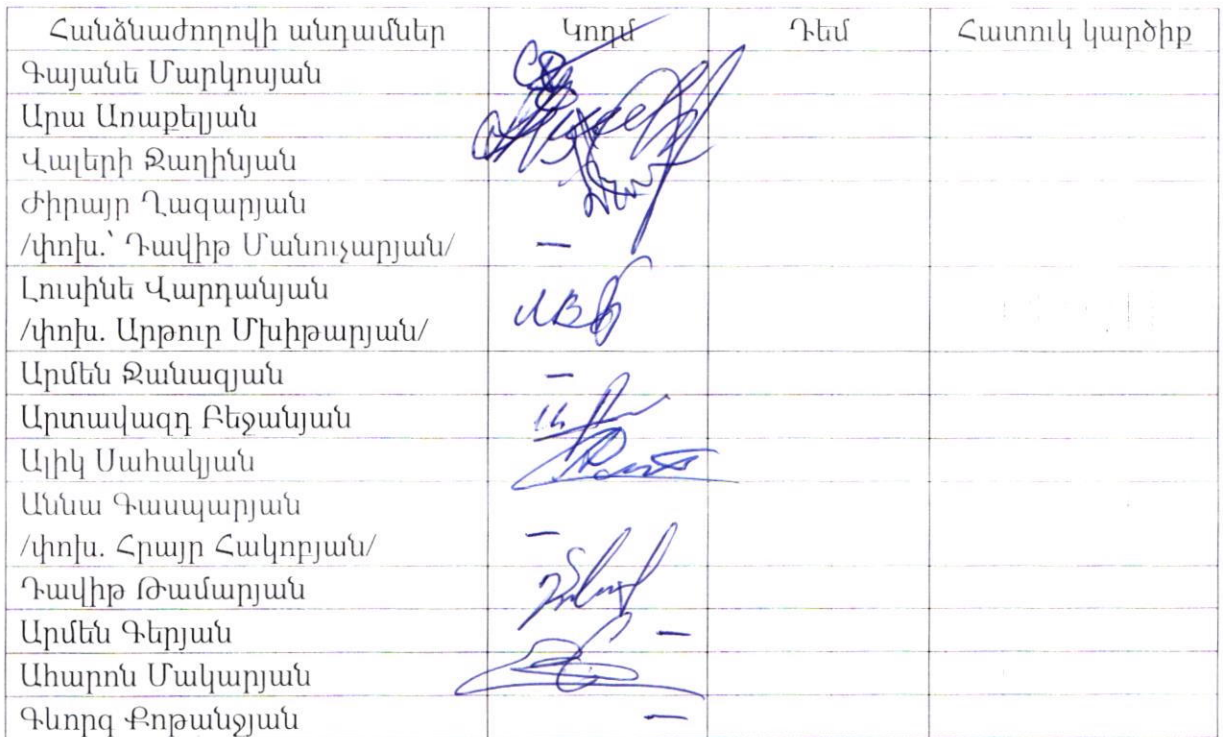 Հանձնաժողովի անդամներ Կողմ Դեմ Հատուկ կարծիք
Գայանե Մարկոսյան
Արա Առաքելյան
Վալերի Ջաղինյան
Ժիրայր Ղազարյան
/փոխ.՝ Դավիթ Մանուչարյան/ —
Լուսինե Վարդանյան
/փոխ. Արթուր Մխիթարյան/
Արմեն Ջանազյան —
Արտավազդ Բեջանյան
Ալիկ Սահակյան
Աննա Գասպարյան
/փոխ. Հրայր Հակոբյան/ —
Դավիթ Թամարյան
Արմեն Գերյան —
Ահարոն Մակարյան
Գևորգ Քոթանջյան —